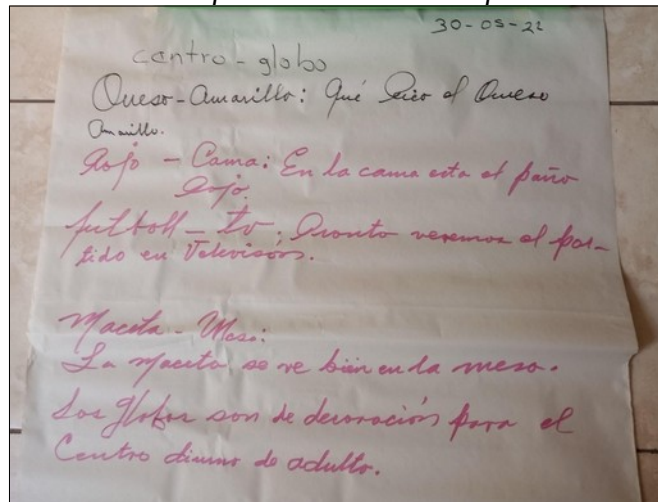 30-05-22
centro-globo
Queso-Amarillo: Qué Rico el Queso
Amarillo.
Rojo - Cama: En la cama esta el paño
Rojo.
futboll - tv: Pronto veremos el par-
tido en Televisoos.
Maceta - Mesa:
La maceta se ve bien en la mesa.
Los globos son de decoración para el
Centro diurno de adulto.